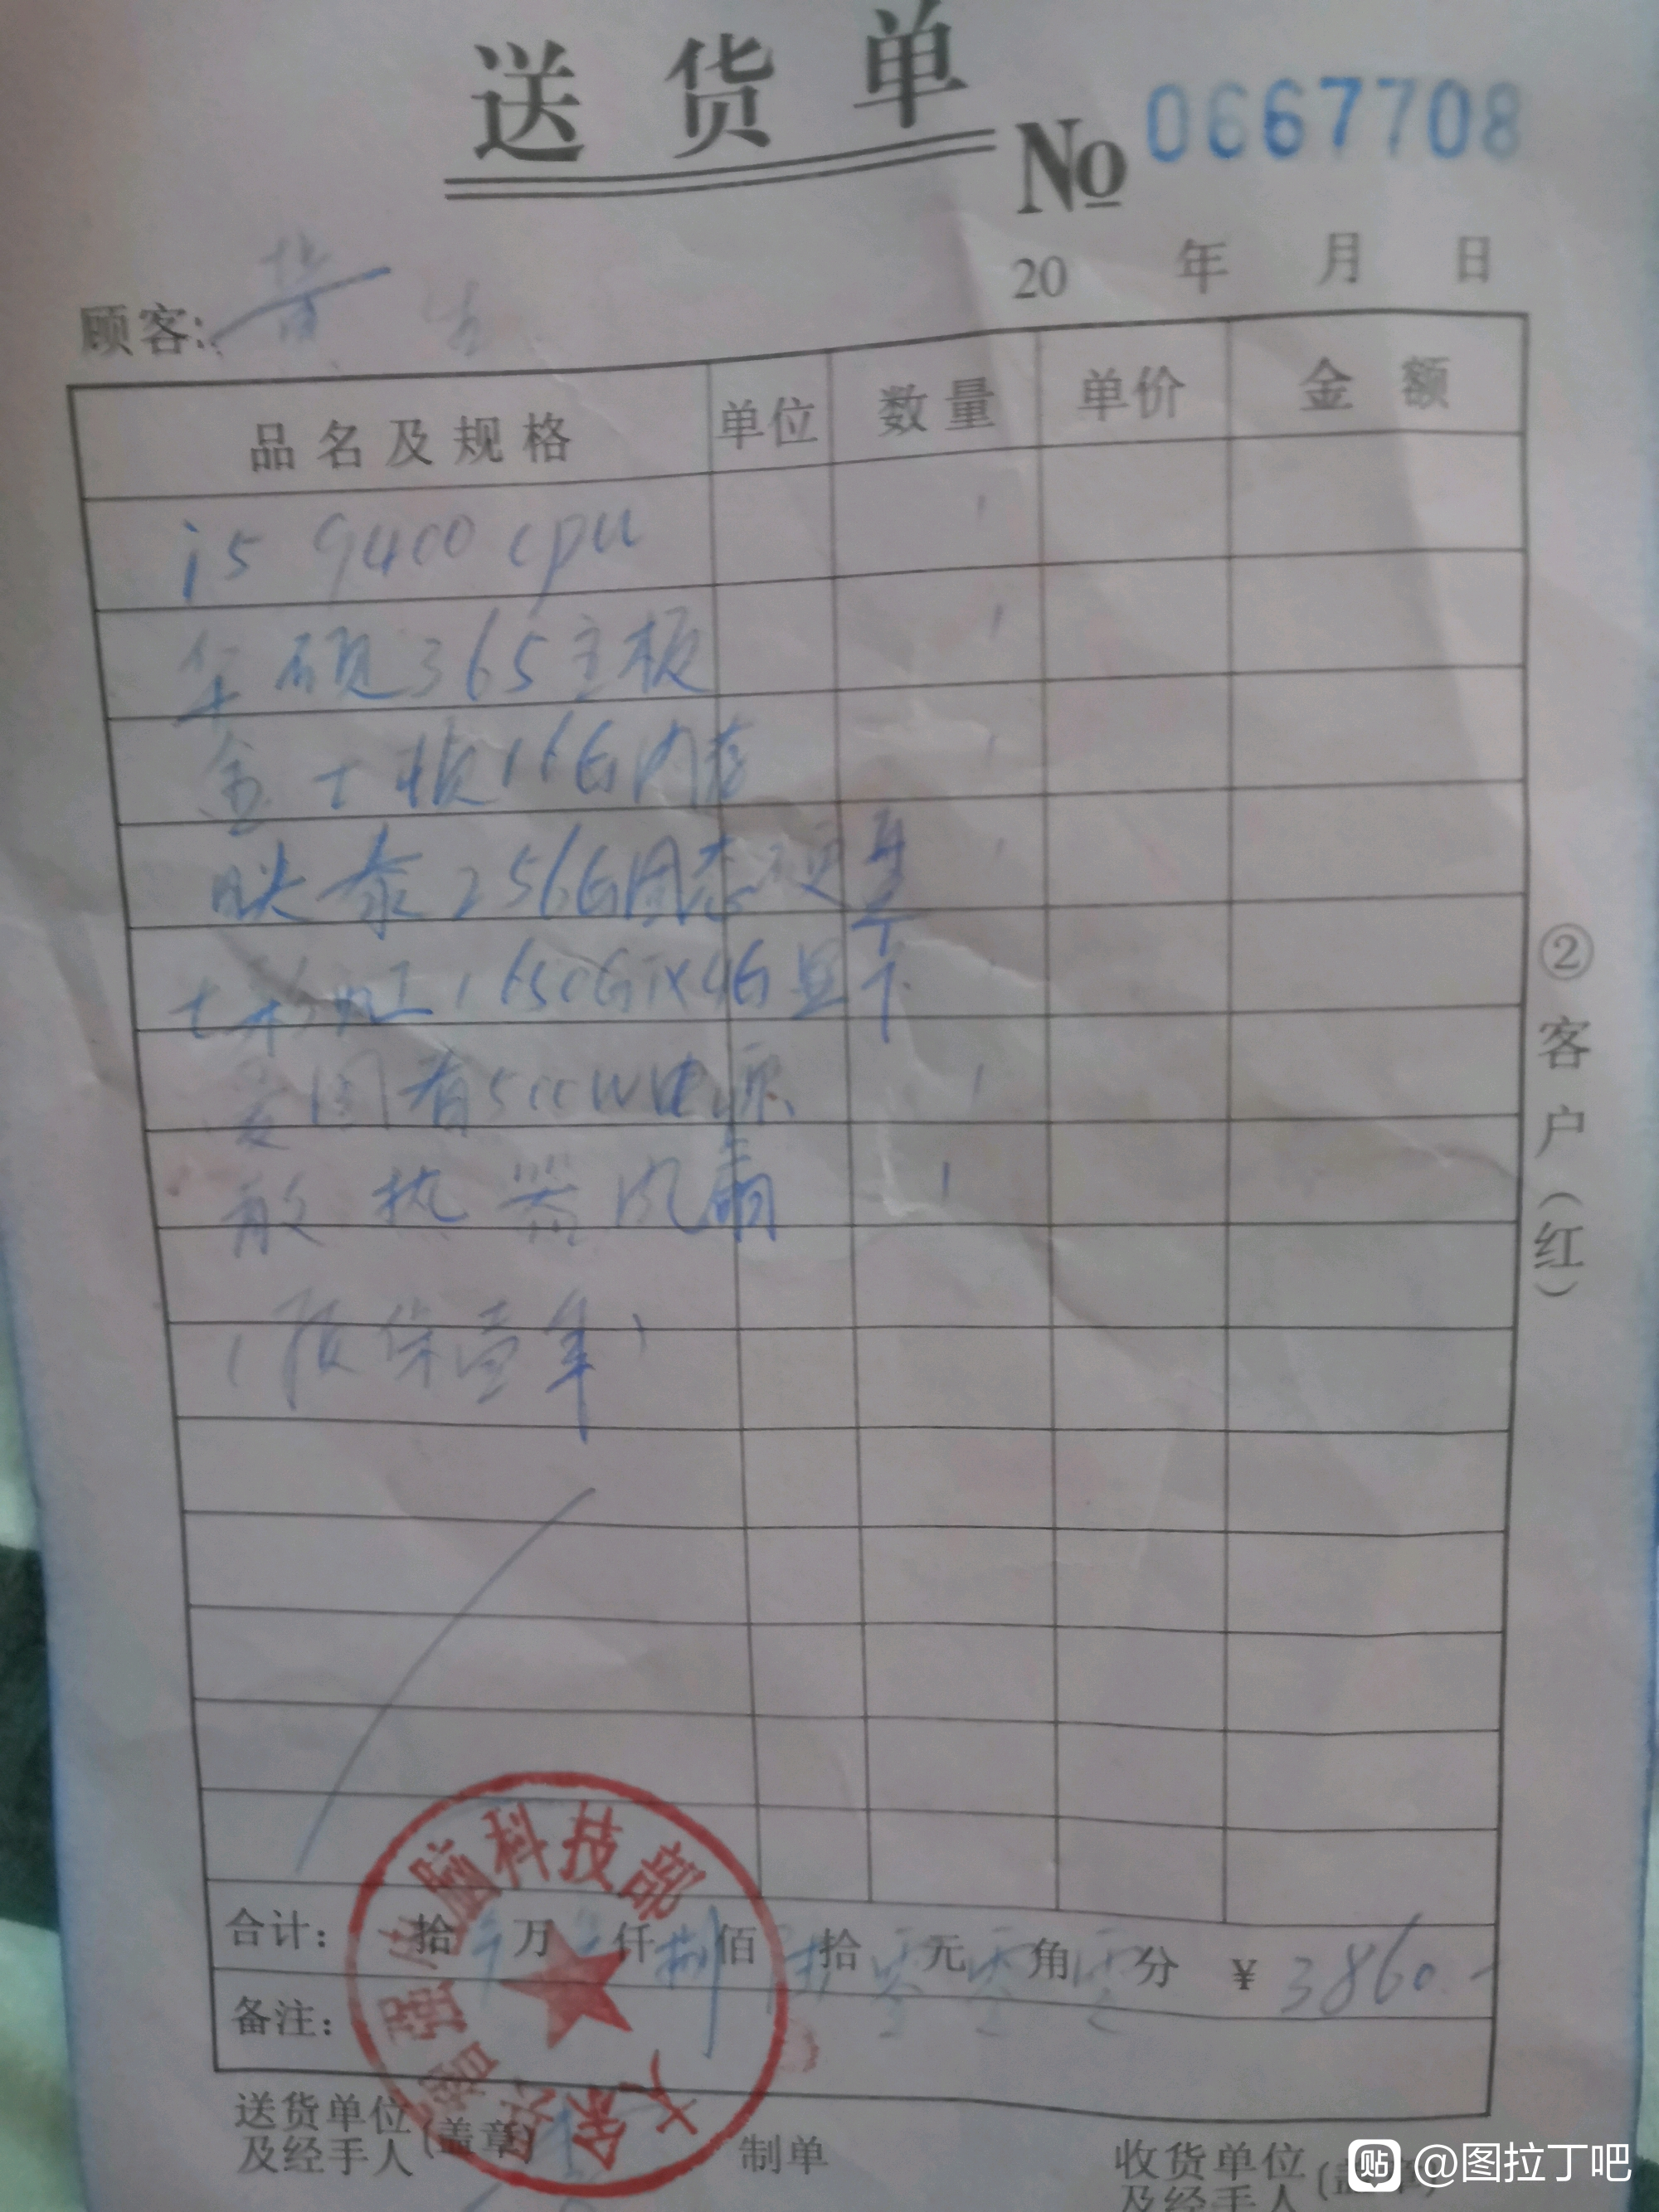 送货单
No 0667708
20 年 月 日
顾客: 黄生
品名及规格 单位 数量 单价 金额
i5 9400 cpu 1
华硕365主板 1
金士顿16G内存 1
映泰256G固态硬盘 1
七彩虹1650GTX4G显卡
爱国者500W电源 1
散热器风扇 1
(质保壹年)
合计: 拾 万 仟 捌 佰 拾 零 元 零 角 零 分 ¥ 3860.-
备注:
脑科技部
②客户(红)
送货单位
及经手人 (盖章)
制单
收货单位
及经手人
贴 @图拉丁吧